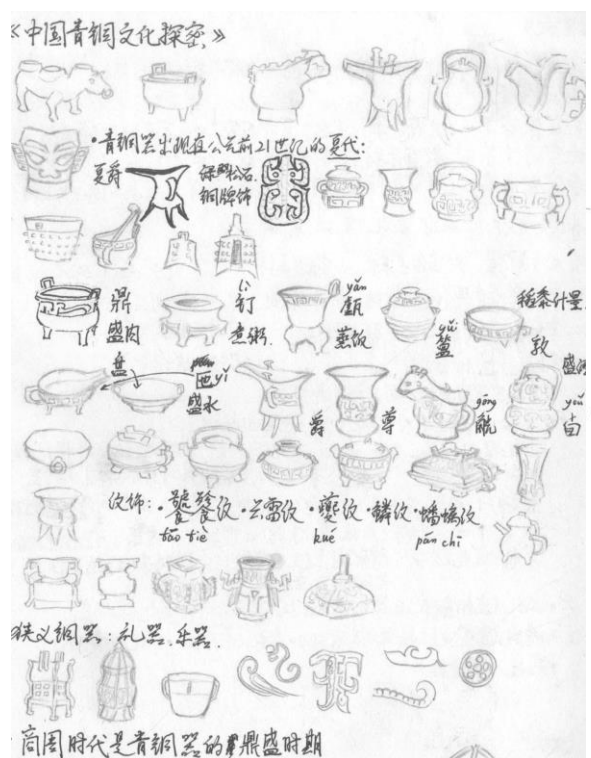 《中国青铜文化探密》
·青铜器出现在公元前21世纪的夏代:
夏爵
绿松石
铜牌饰
鼎
盛肉
煮粥.
yǎn
甗
蒸饭
稻黍计量
敦
盘
匜yǐ
盛水
爵
尊
gōng
觥
yǒu
卣
纹饰:·饕餮纹·云雷纹·夔纹·鳞纹·蟠螭纹
tāo tiè
kué
pán chī
狭义铜器:礼器.乐器.
·商周时代是青铜器的鼎盛时期